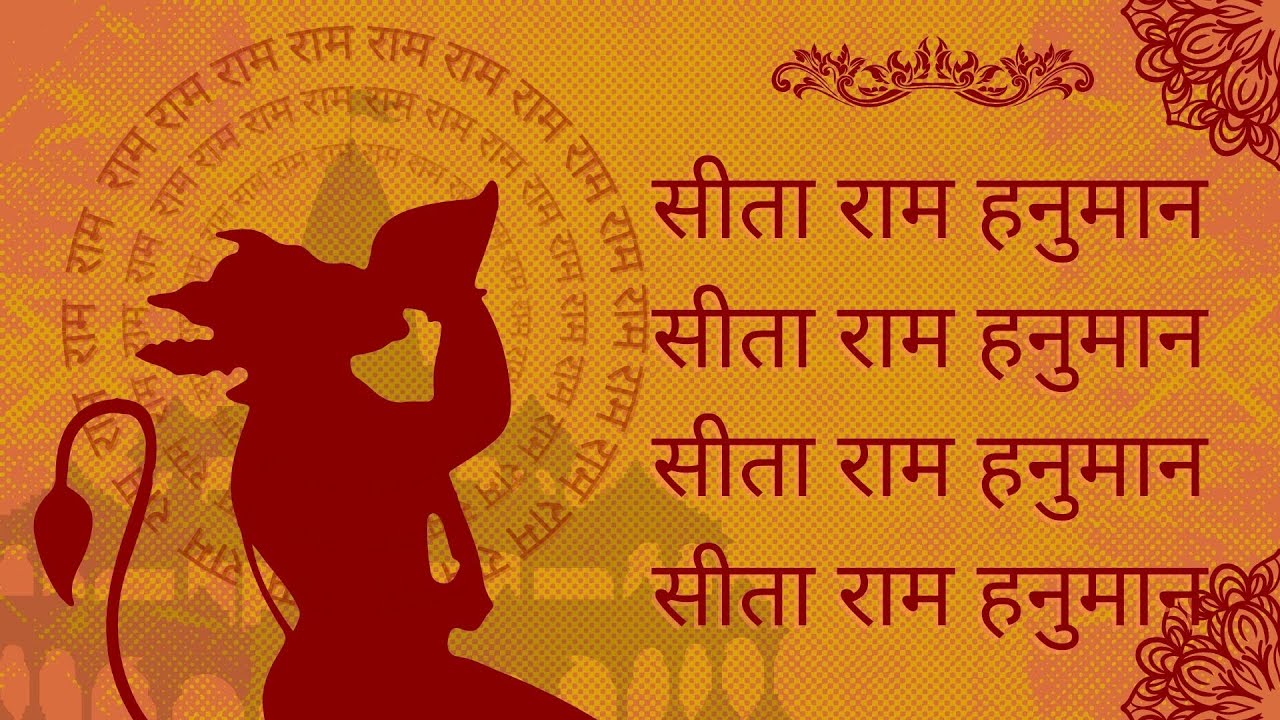 राम राम राम राम राम राम राम राम राम राम राम राम राम राम राम राम
राम राम राम राम राम राम राम राम राम राम राम राम
राम राम राम राम राम राम
सीता राम हनुमान
सीता राम हनुमान
सीता राम हनुमान
सीता राम हनुमान